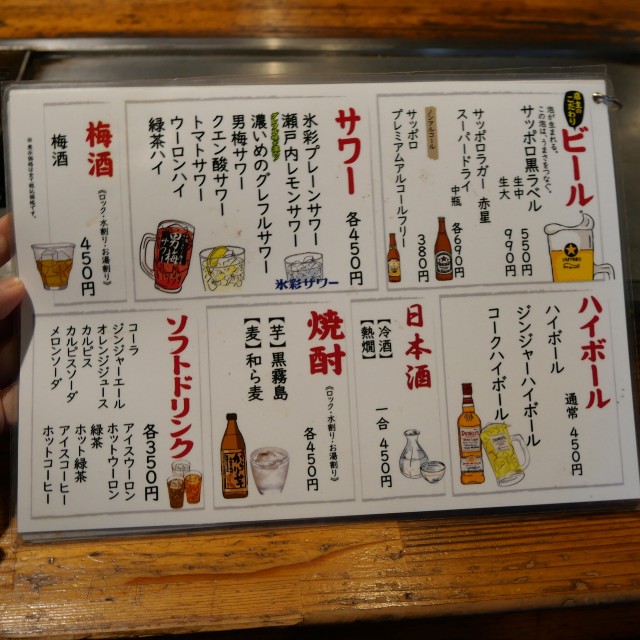 ビール
生生の
こだわり
泡が生まれる。
この泡は、うまさをつなぐ。
サッポロ黒ラベル
生中 550円
生大 990円
サッポロラガー 赤星
スーパードライ
中瓶 各690円
ノンアルコール
サッポロ
プレミアムアルコールフリー
380円
サワー
各450円
氷彩プレーンサワー
瀬戸内レモンサワー
濃いめのグレフルサワー
男梅サワー
クエン酸サワー
トマトサワー
ウーロンハイ
緑茶ハイ
男梅
サワー
氷彩サワー
梅酒
《ロック・水割り・お湯割り》
450円
梅酒
※表示価格は全て税込価格です。
ハイボール
ハイボール 通常 450円
ジンジャーハイボール
コークハイボール
日本酒
【冷酒】
【熱燗】
一合 450円
焼酎
《ロック・水割り・お湯割り》
各450円
【芋】黒霧島
【麦】和ら麦
ソフトドリンク
各350円
コーラ
ジンジャーエール
オレンジジュース
カルピス
カルピスソーダ
メロンソーダ
アイスウーロン
ホットウーロン
緑茶
ホット緑茶
アイスコーヒー
ホットコーヒー